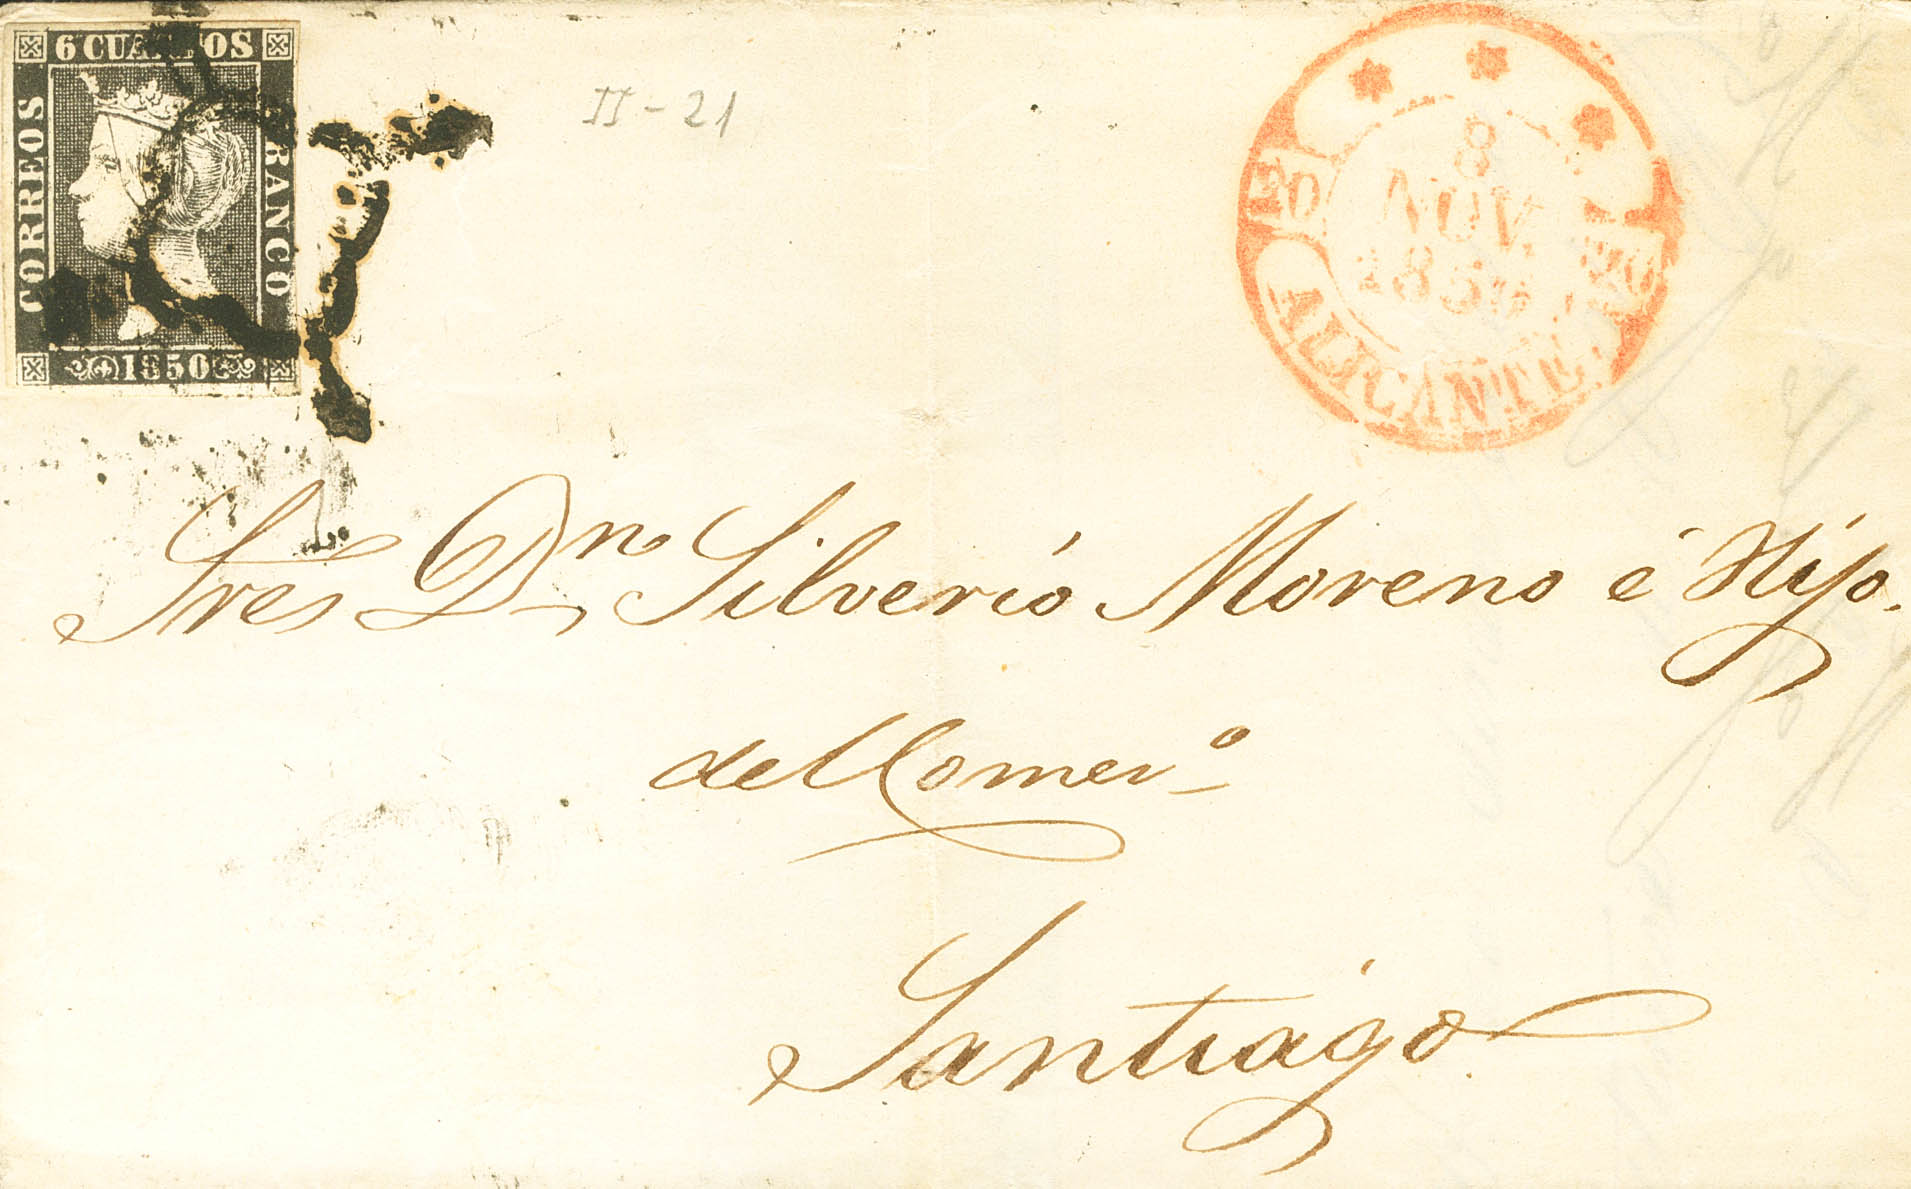 6 CUARTOS
CORREOS
FRANCO
1850
II-21
8
NOV.
1850
20
20
ALICANTE.
Sres Dn Silverio Moreno é Hijo.
del Comer.º
Santiago